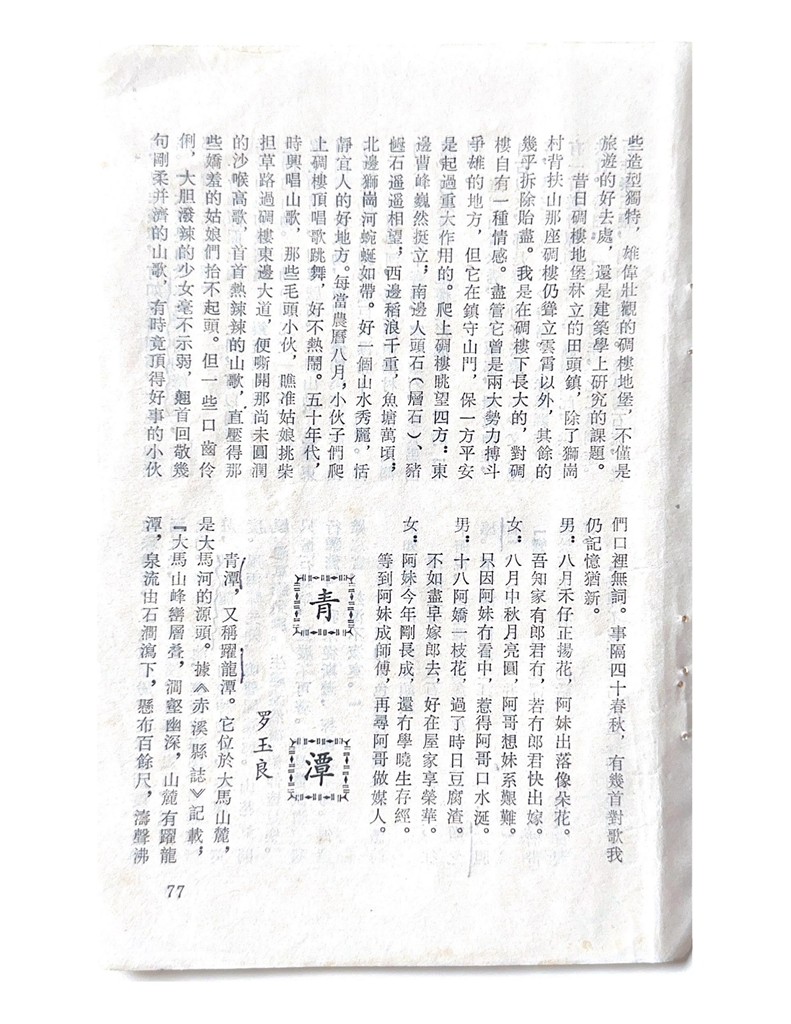 些造型獨特，雄偉壯觀的碉樓地堡，不僅是
旅遊的好去處，還是建築學上研究的課題。
昔日碉樓地堡林立的田頭鎮，除了獅崗
村背扶山那座碉樓仍聳立雲霄以外，其餘的
幾乎拆除貽盡。我是在碉樓下長大的，對碉
樓自有一種情感。盡管它曾是兩大勢力搏斗
爭雄的地方，但它在鎮守山門，保一方平安
是起過重大作用的。爬上碉樓眺望四方：東
邊曹峰巍然挺立，南邊人頭石（層石）、豬
乸石遥遥相望，西邊稻浪千重，魚塘萬頃，
北邊獅崗河蜿蜒如帶。好一個山水秀麗，恬
靜宜人的好地方。每當農曆八月，小伙子們爬
上碉樓頂唱歌跳舞，好不熱鬧。五十年代，
時興唱山歌，那些毛頭小伙，瞧准姑娘挑柴
担草路過碉樓東邊大道，便嘶開那尚未圓潤
的沙喉高歌，首首熱辣辣的山歌，直壓得那
些嬌羞的姑娘們抬不起頭。但一些口齒伶
俐，大胆潑辣的少女毫不示弱，翹首回敬幾
句剛柔并濟的山歌，有時竟頂得好事的小伙
們口裡無詞。事隔四十春秋，有幾首對歌我
仍記憶猶新。
男：八月禾仔正揚花，阿妹出落像朵花。
吾知家有郎君冇，若冇郎君快出嫁。
女：八月中秋月亮圓，阿哥想妹系艱難。
只因阿妹冇看中，惹得阿哥口水涎。
男：十八阿嬌一枝花，過了時日豆腐渣。
不如盡早嫁郎去，好在屋家享榮華。
女：阿妹今年剛長成，還冇學曉生存經。
等到阿妹成師傅，再尋阿哥做媒人。
青潭
罗玉良
青潭，又稱躍龍潭。它位於大馬山麓，
是大馬河的源頭。據《赤溪縣誌》記載，
『大馬山峰巒層叠，澗壑幽深，山麓有躍龍
潭，泉流由石澗瀉下，懸布百餘尺，濤聲沸
77